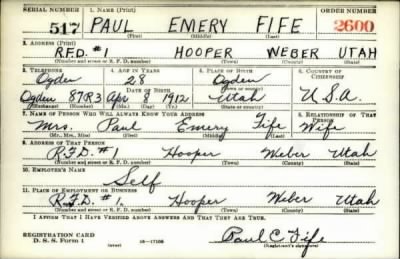 SERIAL NUMBER 1. NAME (Print) ORDER NUMBER
517 PAUL EMERY FIFE 2600
(First) (Middle) (Last)
2. ADDRESS (Print)
R.F.D. #1 HOOPER WEBER UTAH
(Number and street or R. F. D. number) (Town) (County) (State)
3. TELEPHONE 4. AGE IN YEARS 5. PLACE OF BIRTH 6. COUNTRY OF CITIZENSHIP
Ogden 28 Ogden
DATE OF BIRTH (Town or county)
Ogden 87R3 Apr 8 1912 Utah U.S.A.
(Exchange) (Number) (Mo.) (Day) (Yr.) (State or country)
7. NAME OF PERSON WHO WILL ALWAYS KNOW YOUR ADDRESS 8. RELATIONSHIP OF THAT PERSON
Mrs. Paul Emery Fife Wife
(Mr., Mrs., Miss) (First) (Middle) (Last)
9. ADDRESS OF THAT PERSON
R.F.D. #1 Hooper Weber Utah
(Number and street or R. F. D. number) (Town) (County) (State)
10. EMPLOYER'S NAME
Self
11. PLACE OF EMPLOYMENT OR BUSINESS
R.F.D. #1. Hooper Weber Utah
(Number and street or R. F. D. number) (Town) (County) (State)
I AFFIRM THAT I HAVE VERIFIED ABOVE ANSWERS AND THAT THEY ARE TRUE.
REGISTRATION CARD
D. S. S. Form 1 16—17105 Paul E. Fife
(Registrant's signature)